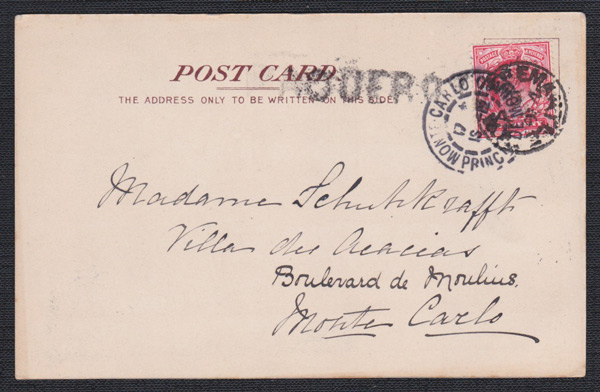 POST CARD
THE ADDRESS ONLY TO BE WRITTEN ON THIS SIDE
Madame Schutzkrafft
Villa des Acacias
Boulevard de Moulins.
Monte Carlo